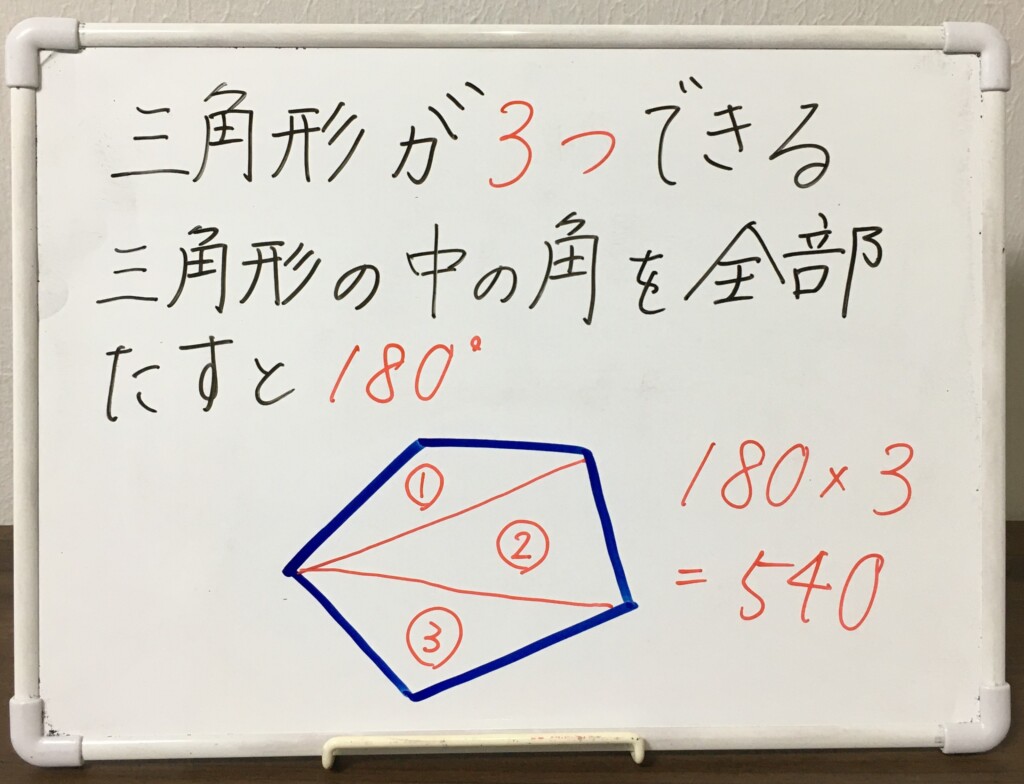 三角形が3つできる
三角形の中の角を全部
たすと180°
①
180×3
②
=540
③